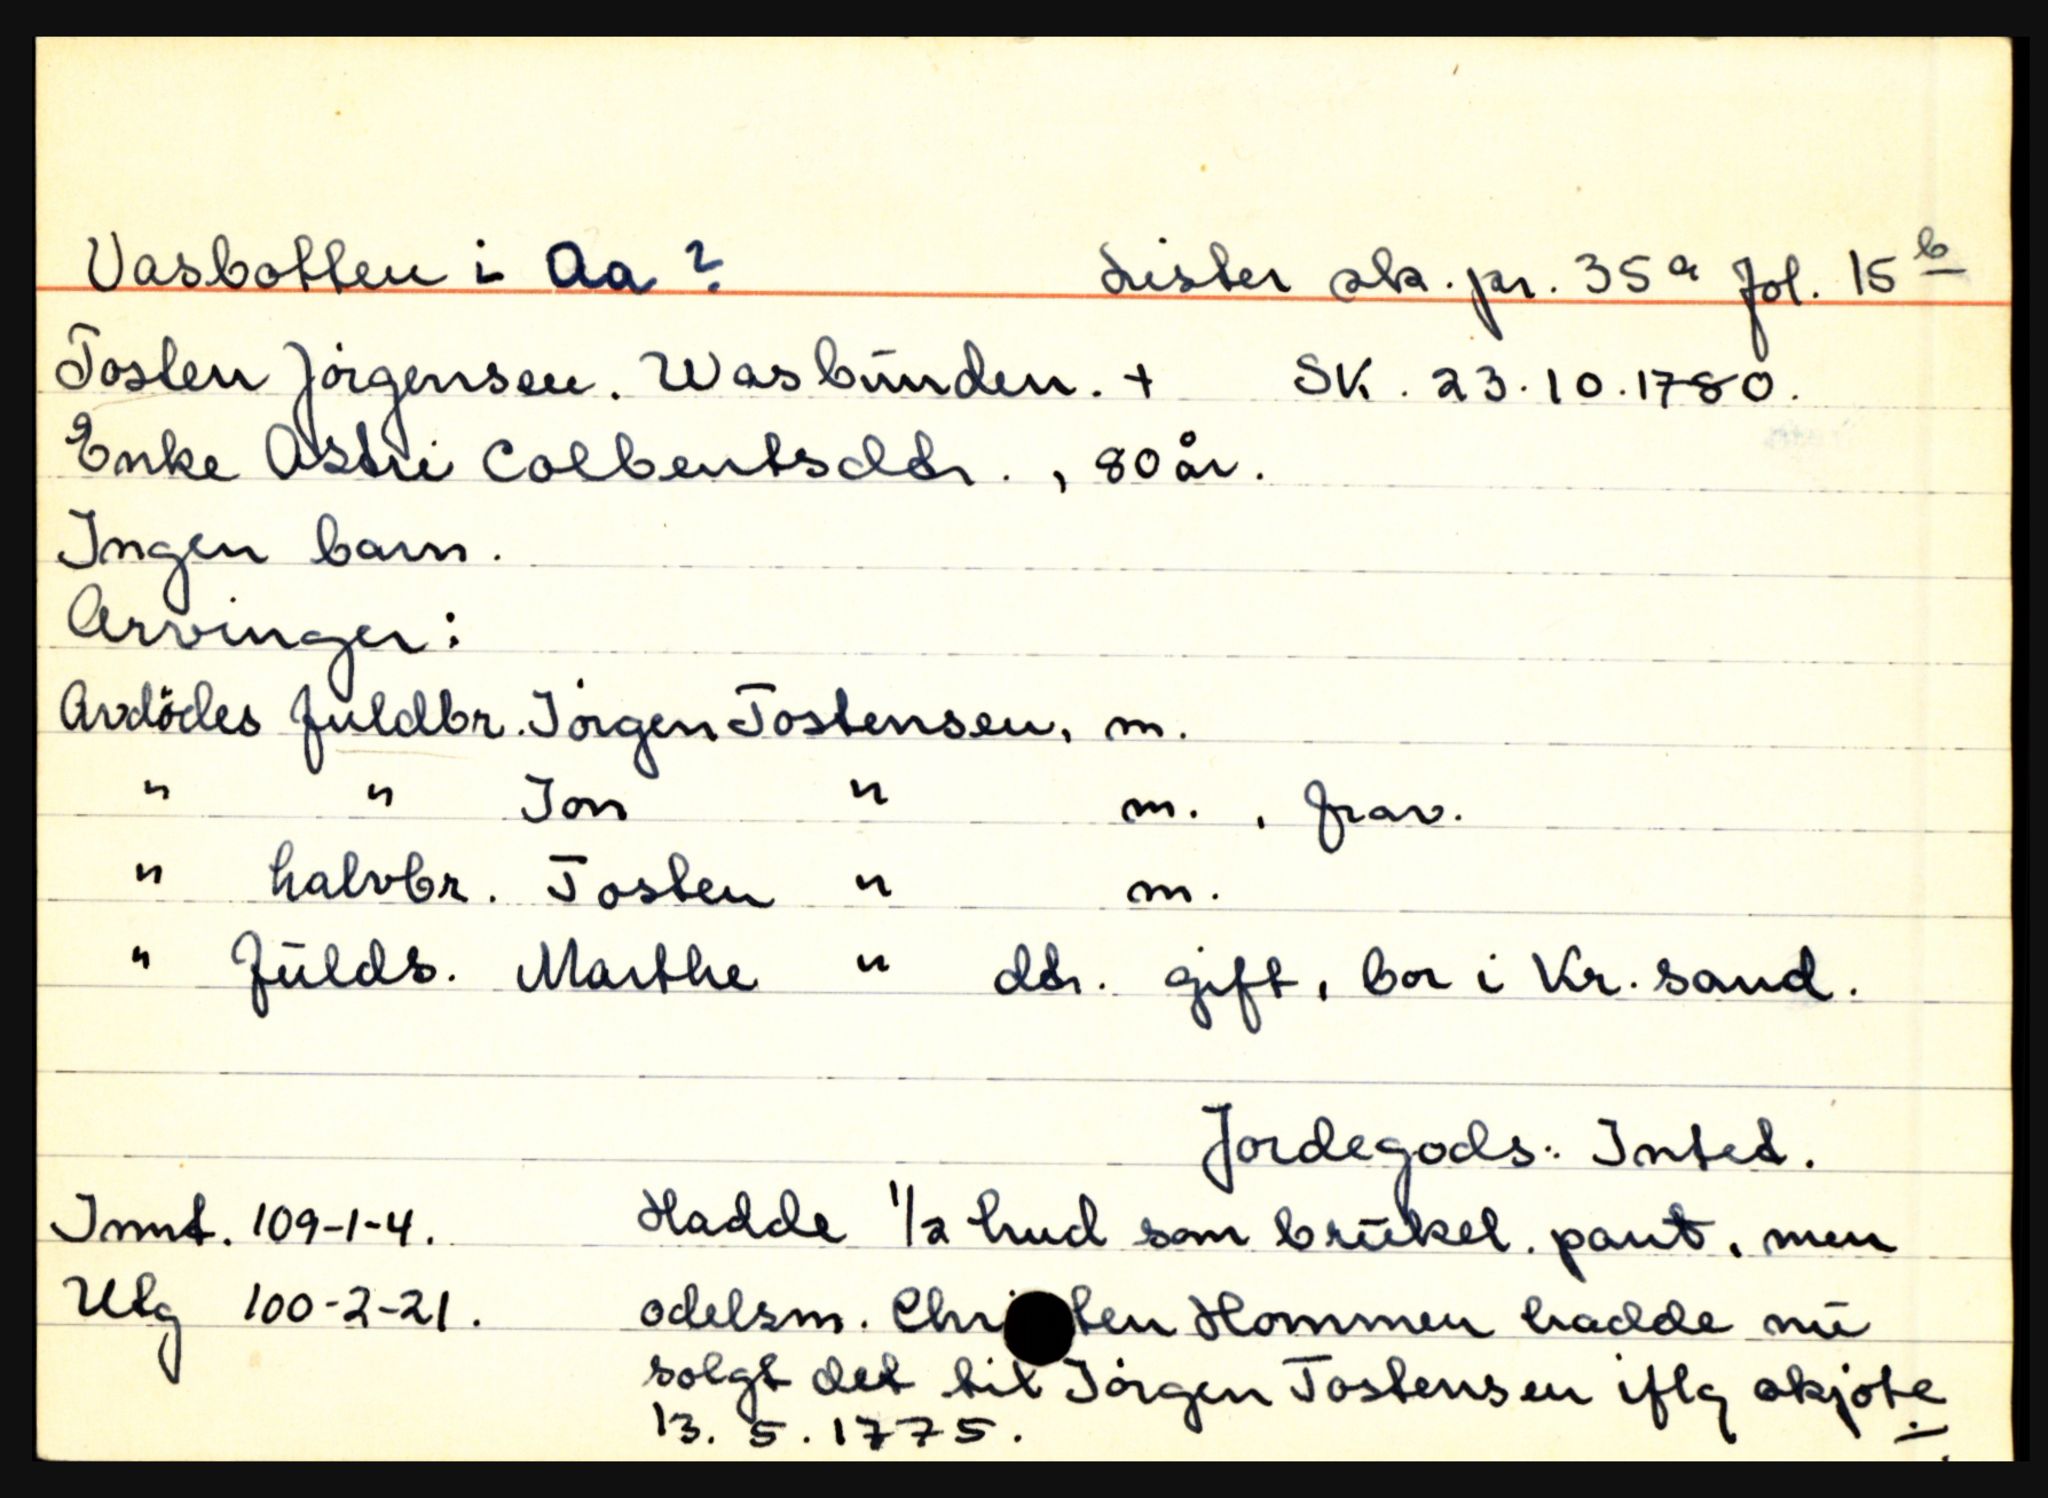 Vasbotten i Aa ? Lister sk. pr. 35 a fol. 15 b
Tosten Jörgensen. Wasbunden. + SK. 23.10.1780.
Enke Astri Colbentsdtr., 80 år.
Ingen barn.
Arvinger:
Avdödes fuldbr. Jörgen Tostensen, m.
" " Jon " m. , frav.
" halvbr. Tosten " m.
" fulds. Marthe " dtr. gift, bor i Kr. sand.
Jordegods: Intet.
Innt. 109-1-4. Hadde 1/2 hud som brukel. pant, men
Utg 100-2-21. odelsm. Chri ten Hommen hadde nu
solgt det til Jörgen Tostensen iflg skjöte
13. 5. 1775.